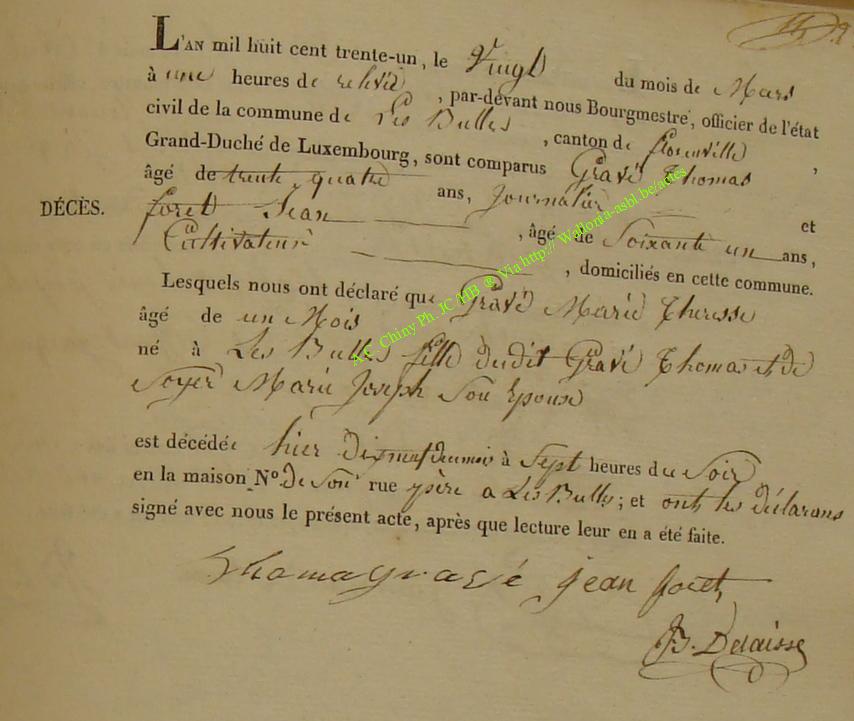 L'AN mil huit cent trente-un, le Vingt du mois de Mars
à une heures de relevé, par-devant nous Bourgmestre, officier de l'état
civil de la commune de Les Bulles, canton de florenville,
Grand-Duché de Luxembourg, sont comparus Gravé Thomas
âgé de trente quatre ans, Journalier et
DÉCÈS.
foret Jean
Cultivateur, âgé de Soixante un ans,
, domiciliés en cette commune.
Lesquels nous ont déclaré que Gravé Marie Theresse
âgé de un Mois
né à Les Bulles fille dudit Gravé Thomas et de
Soyer Marie Joseph Son Epouse
est décédée hier Dixneuf du mois à Sept heures du Soir
en la maison N°. De Son rue père a Les Bulles; et ont les déclarans
signé avec nous le présent acte, après que lecture leur en a été faite.
thomas gravé jean foret
JB. Delaisse
A.E. Chiny Ph. JC HB ® Via http:// Wallonia-asbl.be/actes